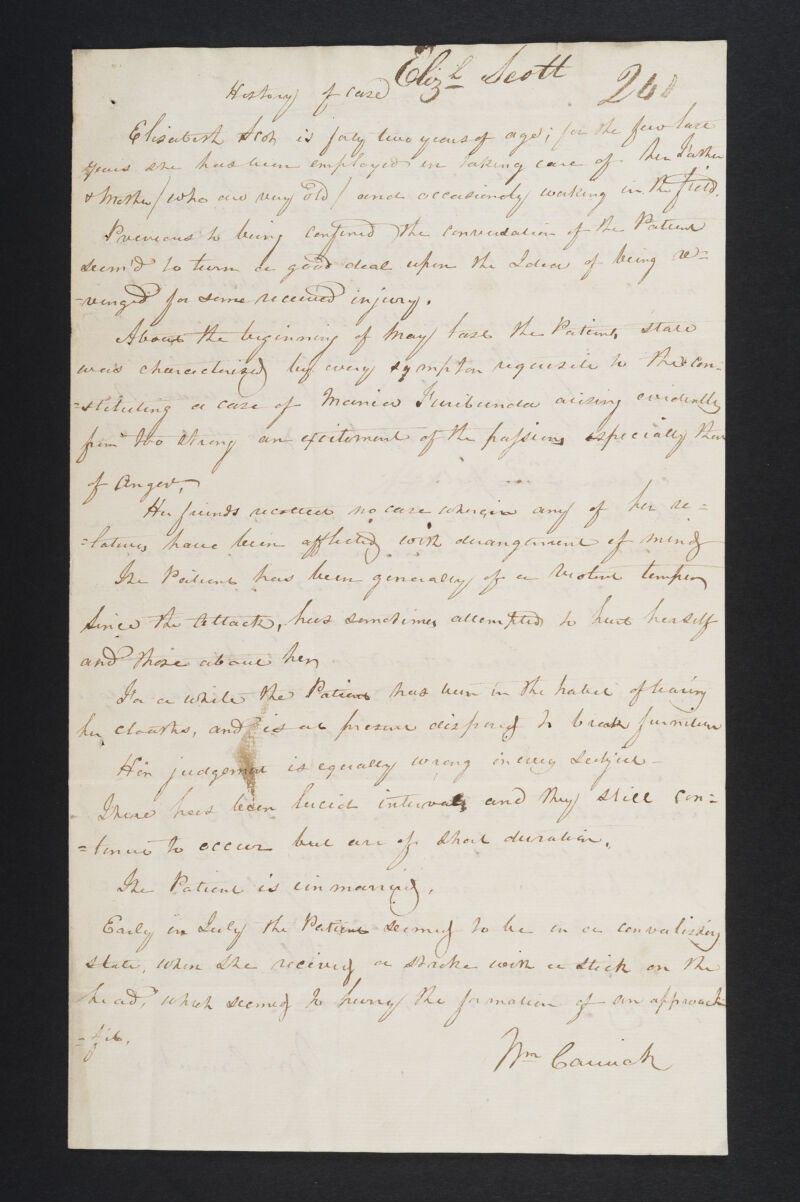 Elizh Scott
History of case
Elisabeth Scot is forty two years of age; for the few last
years she has been employed in taking care of her Father
& Mother / who are very old / and occasionly working in the field.
Previous to being confined the conversation of the Patient
seem'd to turn a good deal upon the Idea of being re=
=venged for some received injury.
About the beginning of May last the Patients state
was characterised by every sympton requisite to the con=
=stituting a case of Mania Furibunda arising evidently
from too strong an excitement of the passions especially that
of Anger.
Her friends recollect no case wherein any of her re=
=latives have been afflicted with derangement of mind
The Patient has been generally of a violent temper
since the Attack, has sometimes attempted to hurt herself
and those about her
For a while the Patient has been in the habit of tearing
her cloaths, and is at present disposed to break furniture
Her judgement is equally wrong in every subject -
There has been lucid intervals and they still con=
=tinue to occur but are of short duration.
The Patient is unmarried.
Early in July the Patient seemed to be in a
state, when she received a stroke with a stick on the
head, which seemed to hurry the formation of an approach
=fit.
Wm Carrick